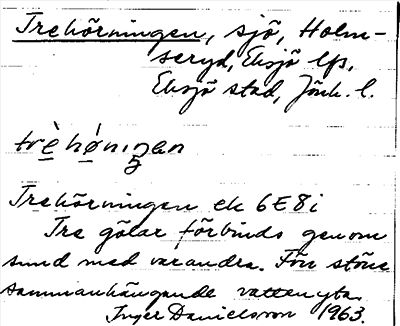 Trehörningen, sjö, Holm-
seryd, Eksjö lfs,
Eksjö stad, Jönk. l.
trèhǿnıŋen
Trehörningen ek 6E8i
Tre gölar förbinds genom
sund med varandra. Förr större
sammanhängande vattenyta.
Inger Danielsson 1963.